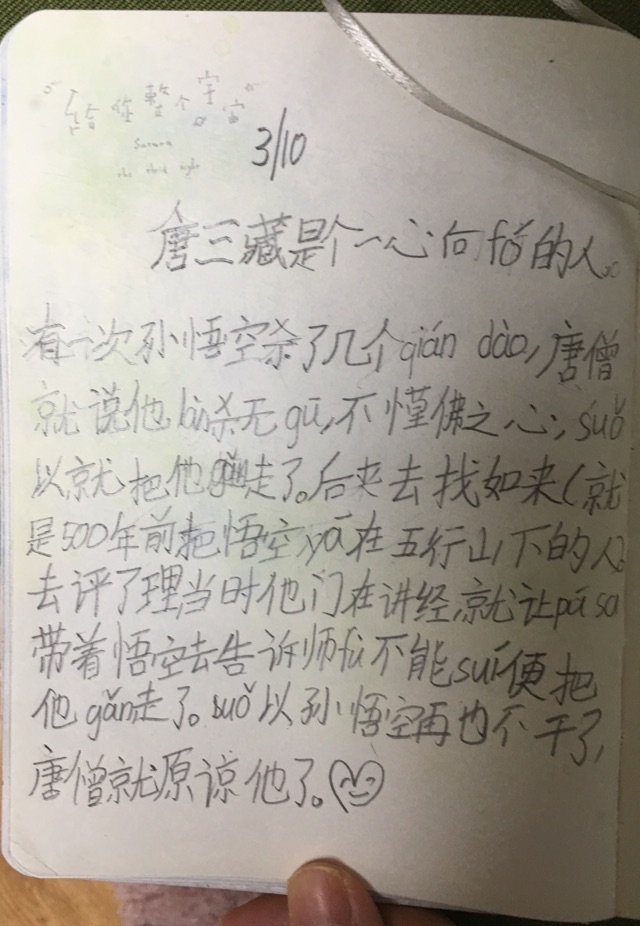 给你整个宇宙
3/10
唐三藏是个一心向fó的人。
有一次孙悟空杀了几个qián dào,唐僧
就说他làn杀无gū,不懂佛之心,suǒ
以就把他gǎn走了。后来去找如来(就
是500年前把悟空yā在五行山下的人)
去评了理当时他门在讲经,就让pú sà
带着悟空去告诉师fu不能suí便把
他gǎn走了。suǒ以孙悟空再也不干了,
唐僧就原谅他了。